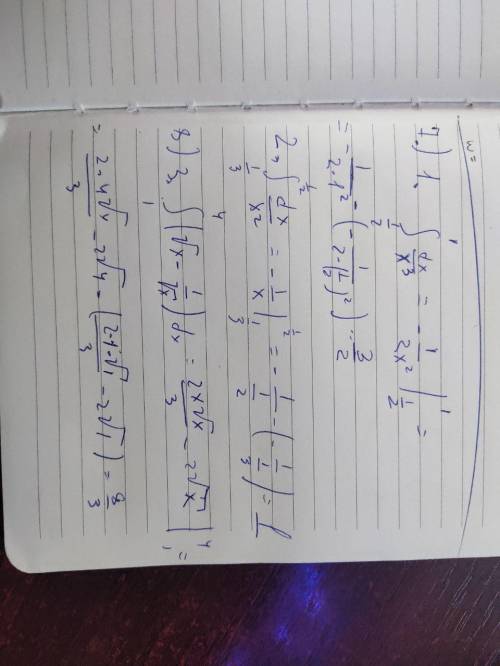 w=
7.) 1. ∫_{1/2}^{1} dx/x³ = - 1/2x² |_{1/2}^{1} =
= - 1/2·1² - (- 1/2·(1/2)²) = 3/2
2. ∫_{1/3}^{1/2} dx/x² = - 1/x |_{1/3}^{1/2} = - 1/(1/2) - (- 1/(1/3)) = 1
8.) 3. ∫_{1}^{4} (√x - 1/√x) dx = 2x√x/3 - 2√x |_{1}^{4} =
= 2·4√x/3 - 2√4 - (2·1·√1/3 - 2√1) = 8/3